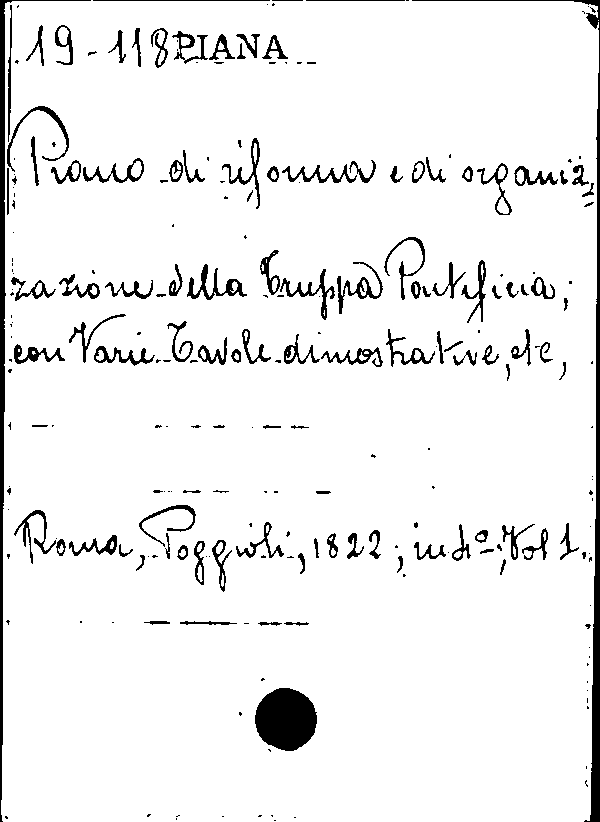 19-118 PIANA
Piano di riforma e di organiz=
zazione della Truppa Pontificia;
con Varie Tavole dimostrative, etc,
Roma, Poggioli, 1822; in 4º; Vol 1.